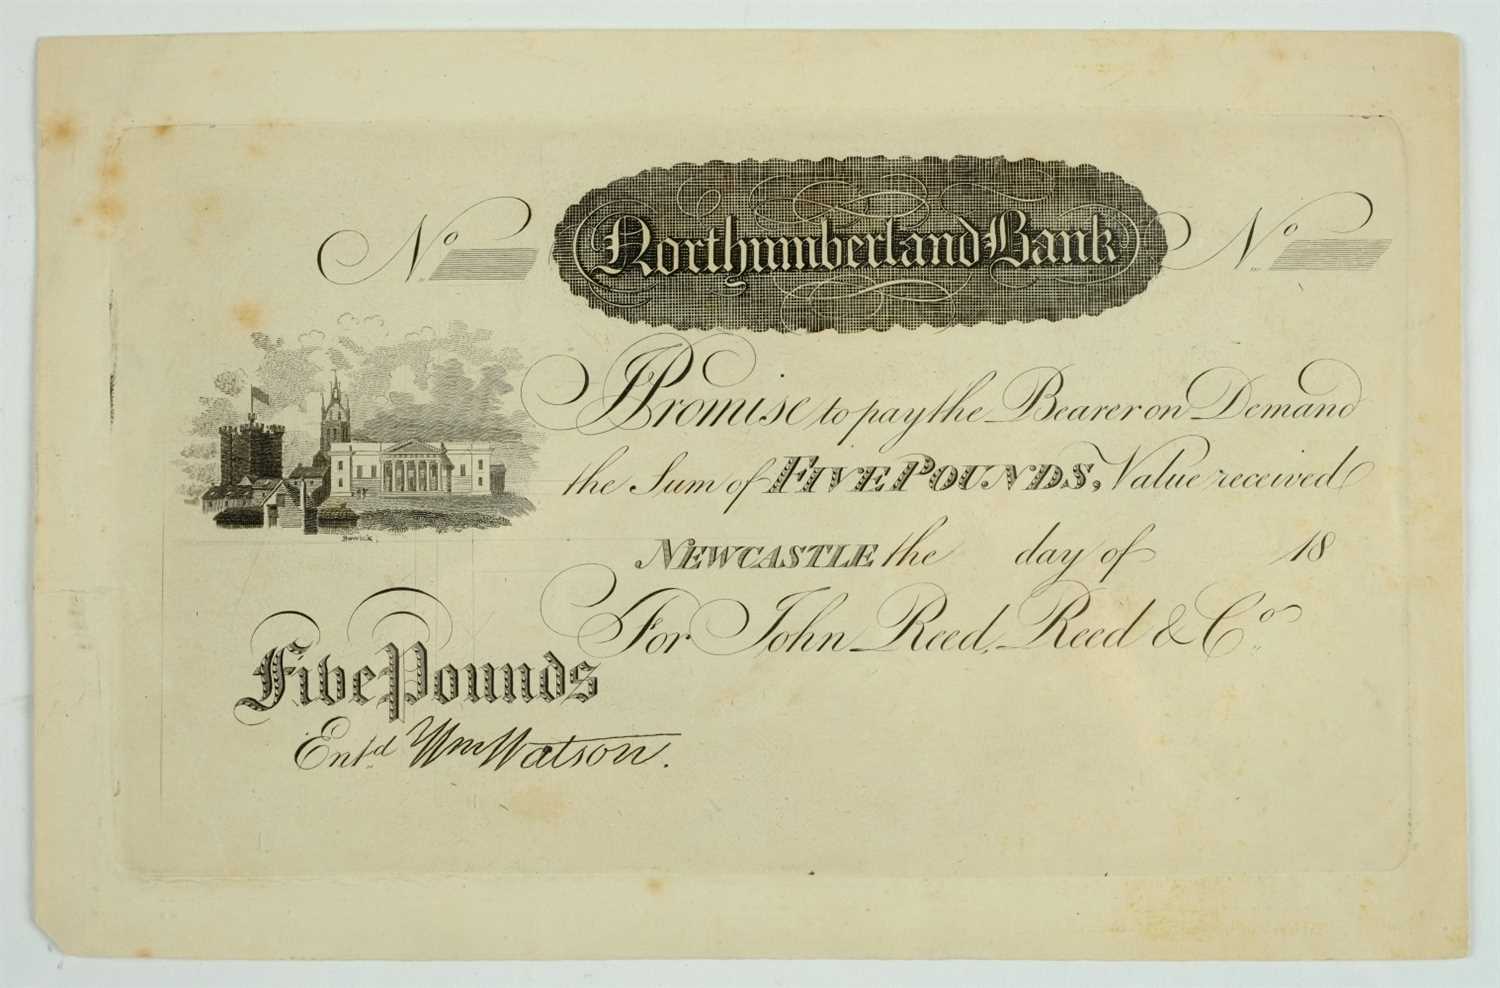 No Northumberland Bank No
I Promise to pay the Bearer on Demand
the Sum of FIVE POUNDS, Value received
Bewick
NEWCASTLE the day of 18
For John Reed, Reed & Co.
Five Pounds
Entd. Wm Watson.